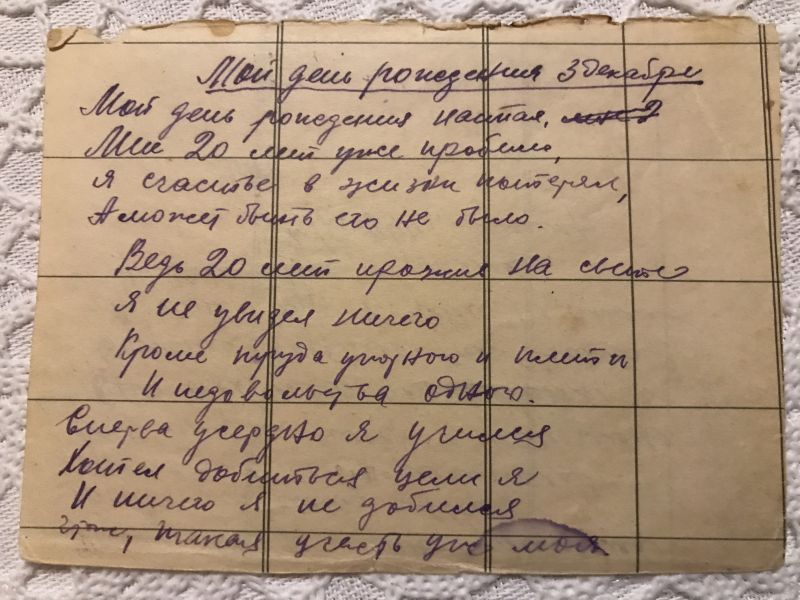 Мой день рождения 3 декабря
Мой день рождения настал,
Мне 20 лет уже пробило,
Я счастье в жизни потерял,
А может быть его не было.
Ведь 20 лет прожил на свете
Я не увидел ничего
Кроме труда и плети
И недовольства одного.
Сперва усердно я учился
Хотел добиться цели я
И ничего я не добился
такая участь уж моя